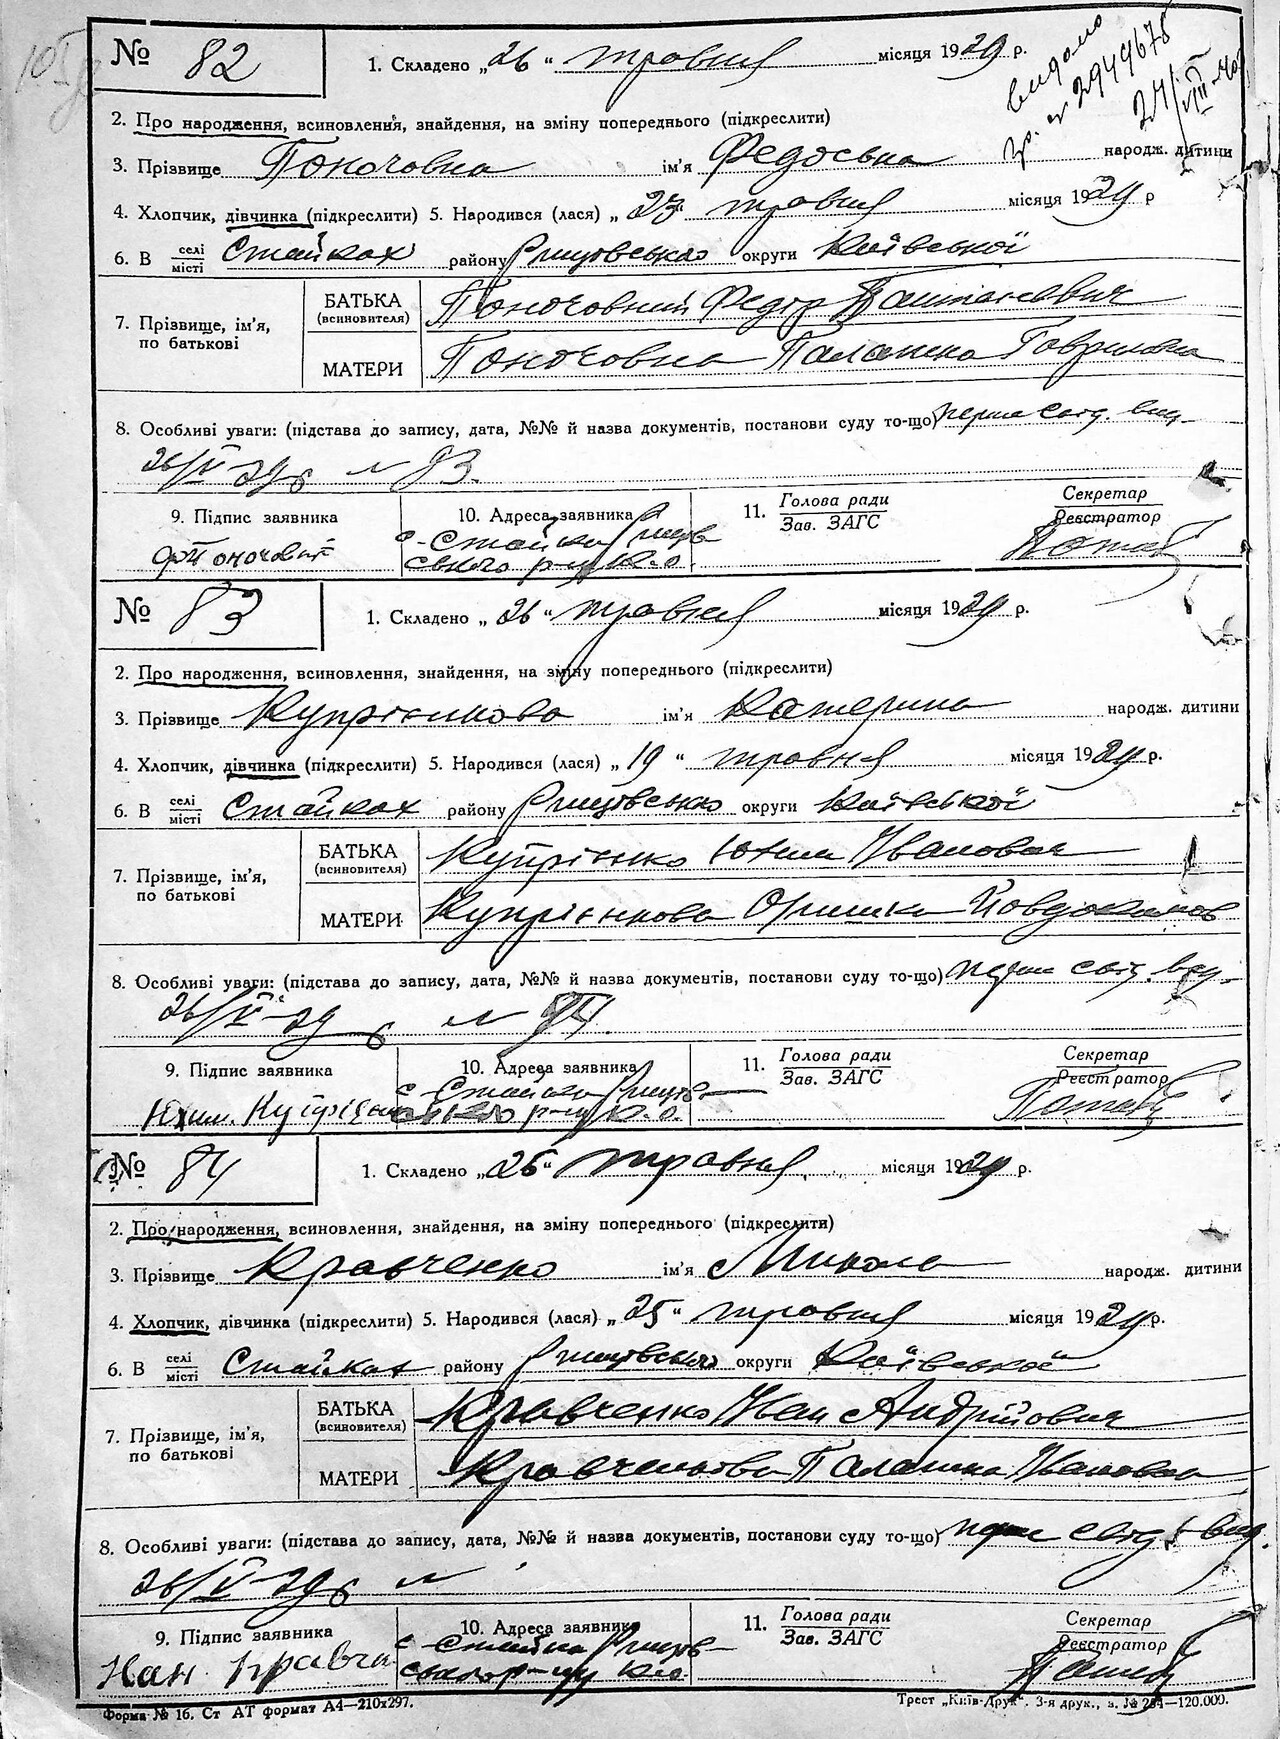 № 82
1. Складено „26“ травня місяця 1929 р.
видано
2944678
2. Про народження, всиновлення, знайдення, на зміну попереднього (підкреслити)
3. Прізвище Поночовна ім'я Федоська народж. дитини
4. Хлопчик, дівчинка (підкреслити) 5. Народився (лася) „23“ травня місяця 1929 р
6. В селі місті Стайках району Ржищівсько округи Київської
7. Прізвище, ім'я, по батькові
БАТЬКА (всиновителя) Поночовний Федір
МАТЕРИ Поночовна Палажка Гаврилівна
8. Особливі уваги: (підстава до запису, дата, №№ й назва документів, постанови суду то-що) перше свід. вид.
26/V-29 р № 93.
9. Підпис заявника 10. Адреса заявника 11. Голова ради Зав. ЗАГС Секретар Реєстратор
Ф Поночовний с. Стайки Ржищів
ського р-ну К.о.
№ 83
1. Складено „26“ травня місяця 1929 р.
2. Про народження, всиновлення, знайдення, на зміну попереднього (підкреслити)
3. Прізвище Купрієнкова ім'я Катерина народж. дитини
4. Хлопчик, дівчинка (підкреслити) 5. Народився (лася) „19“ травня місяця 1929 р.
6. В селі місті Стайках району Ржищівсько округи Київської
7. Прізвище, ім'я, по батькові
БАТЬКА (всиновителя) Купрієнко Юхим Іванович
МАТЕРИ Купрієнкова Оришка Йовдокимов
8. Особливі уваги: (підстава до запису, дата, №№ й назва документів, постанови суду то-що) перше свід. вид.
26/V-29 р № 94.
9. Підпис заявника 10. Адреса заявника 11. Голова ради Зав. ЗАГС Секретар Реєстратор
Юхим. Купрієн с. Стайки Ржищів
ського р-ну К.о.
№ 84
1. Складено „26“ травня місяця 1929 р.
2. Про народження, всиновлення, знайдення, на зміну попереднього (підкреслити)
3. Прізвище Кравченко ім'я Микола народж. дитини
4. Хлопчик, дівчинка (підкреслити) 5. Народився (лася) „25“ травня місяця 1929 р.
6. В селі місті Стайках району Ржищівсько округи Київської
7. Прізвище, ім'я, по батькові
БАТЬКА (всиновителя) Кравченко Іван Андрійович
МАТЕРИ Кравченкова Палажка Івановна
8. Особливі уваги: (підстава до запису, дата, №№ й назва документів, постанови суду то-що) перше свід. вид.
26/V-29 р №
9. Підпис заявника 10. Адреса заявника 11. Голова ради Зав. ЗАГС Секретар Реєстратор
с. Стайки Ржищів
ського р-ну К.о.
Форма № 16. Ст АТ формат А4—210х297. Трест „Київ-Друк“. 3-я друк., з. № 264—120.000.